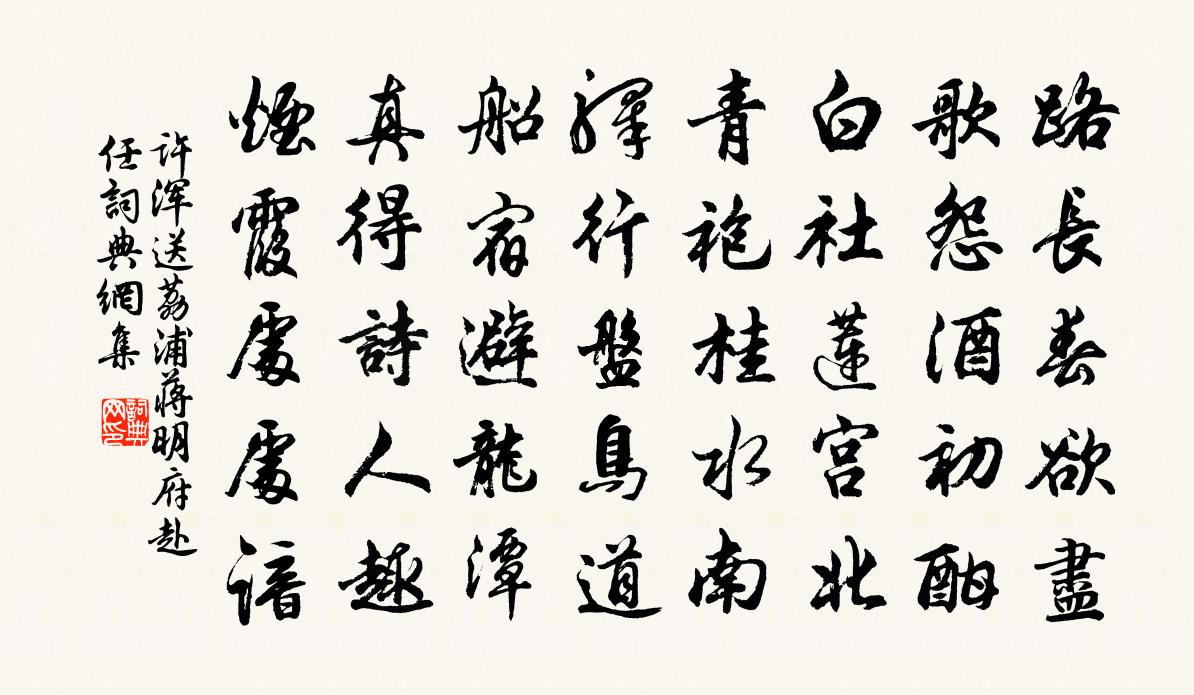 路長春欲盡
歌怨酒初酣
白社蓮宮北
青袍桂水南
驛行盤鳥道
船宿避龍潭
真得詩人趣
煙霞處處諳
許渾送荔浦蔣明府赴
任詞典網集
詞典網印